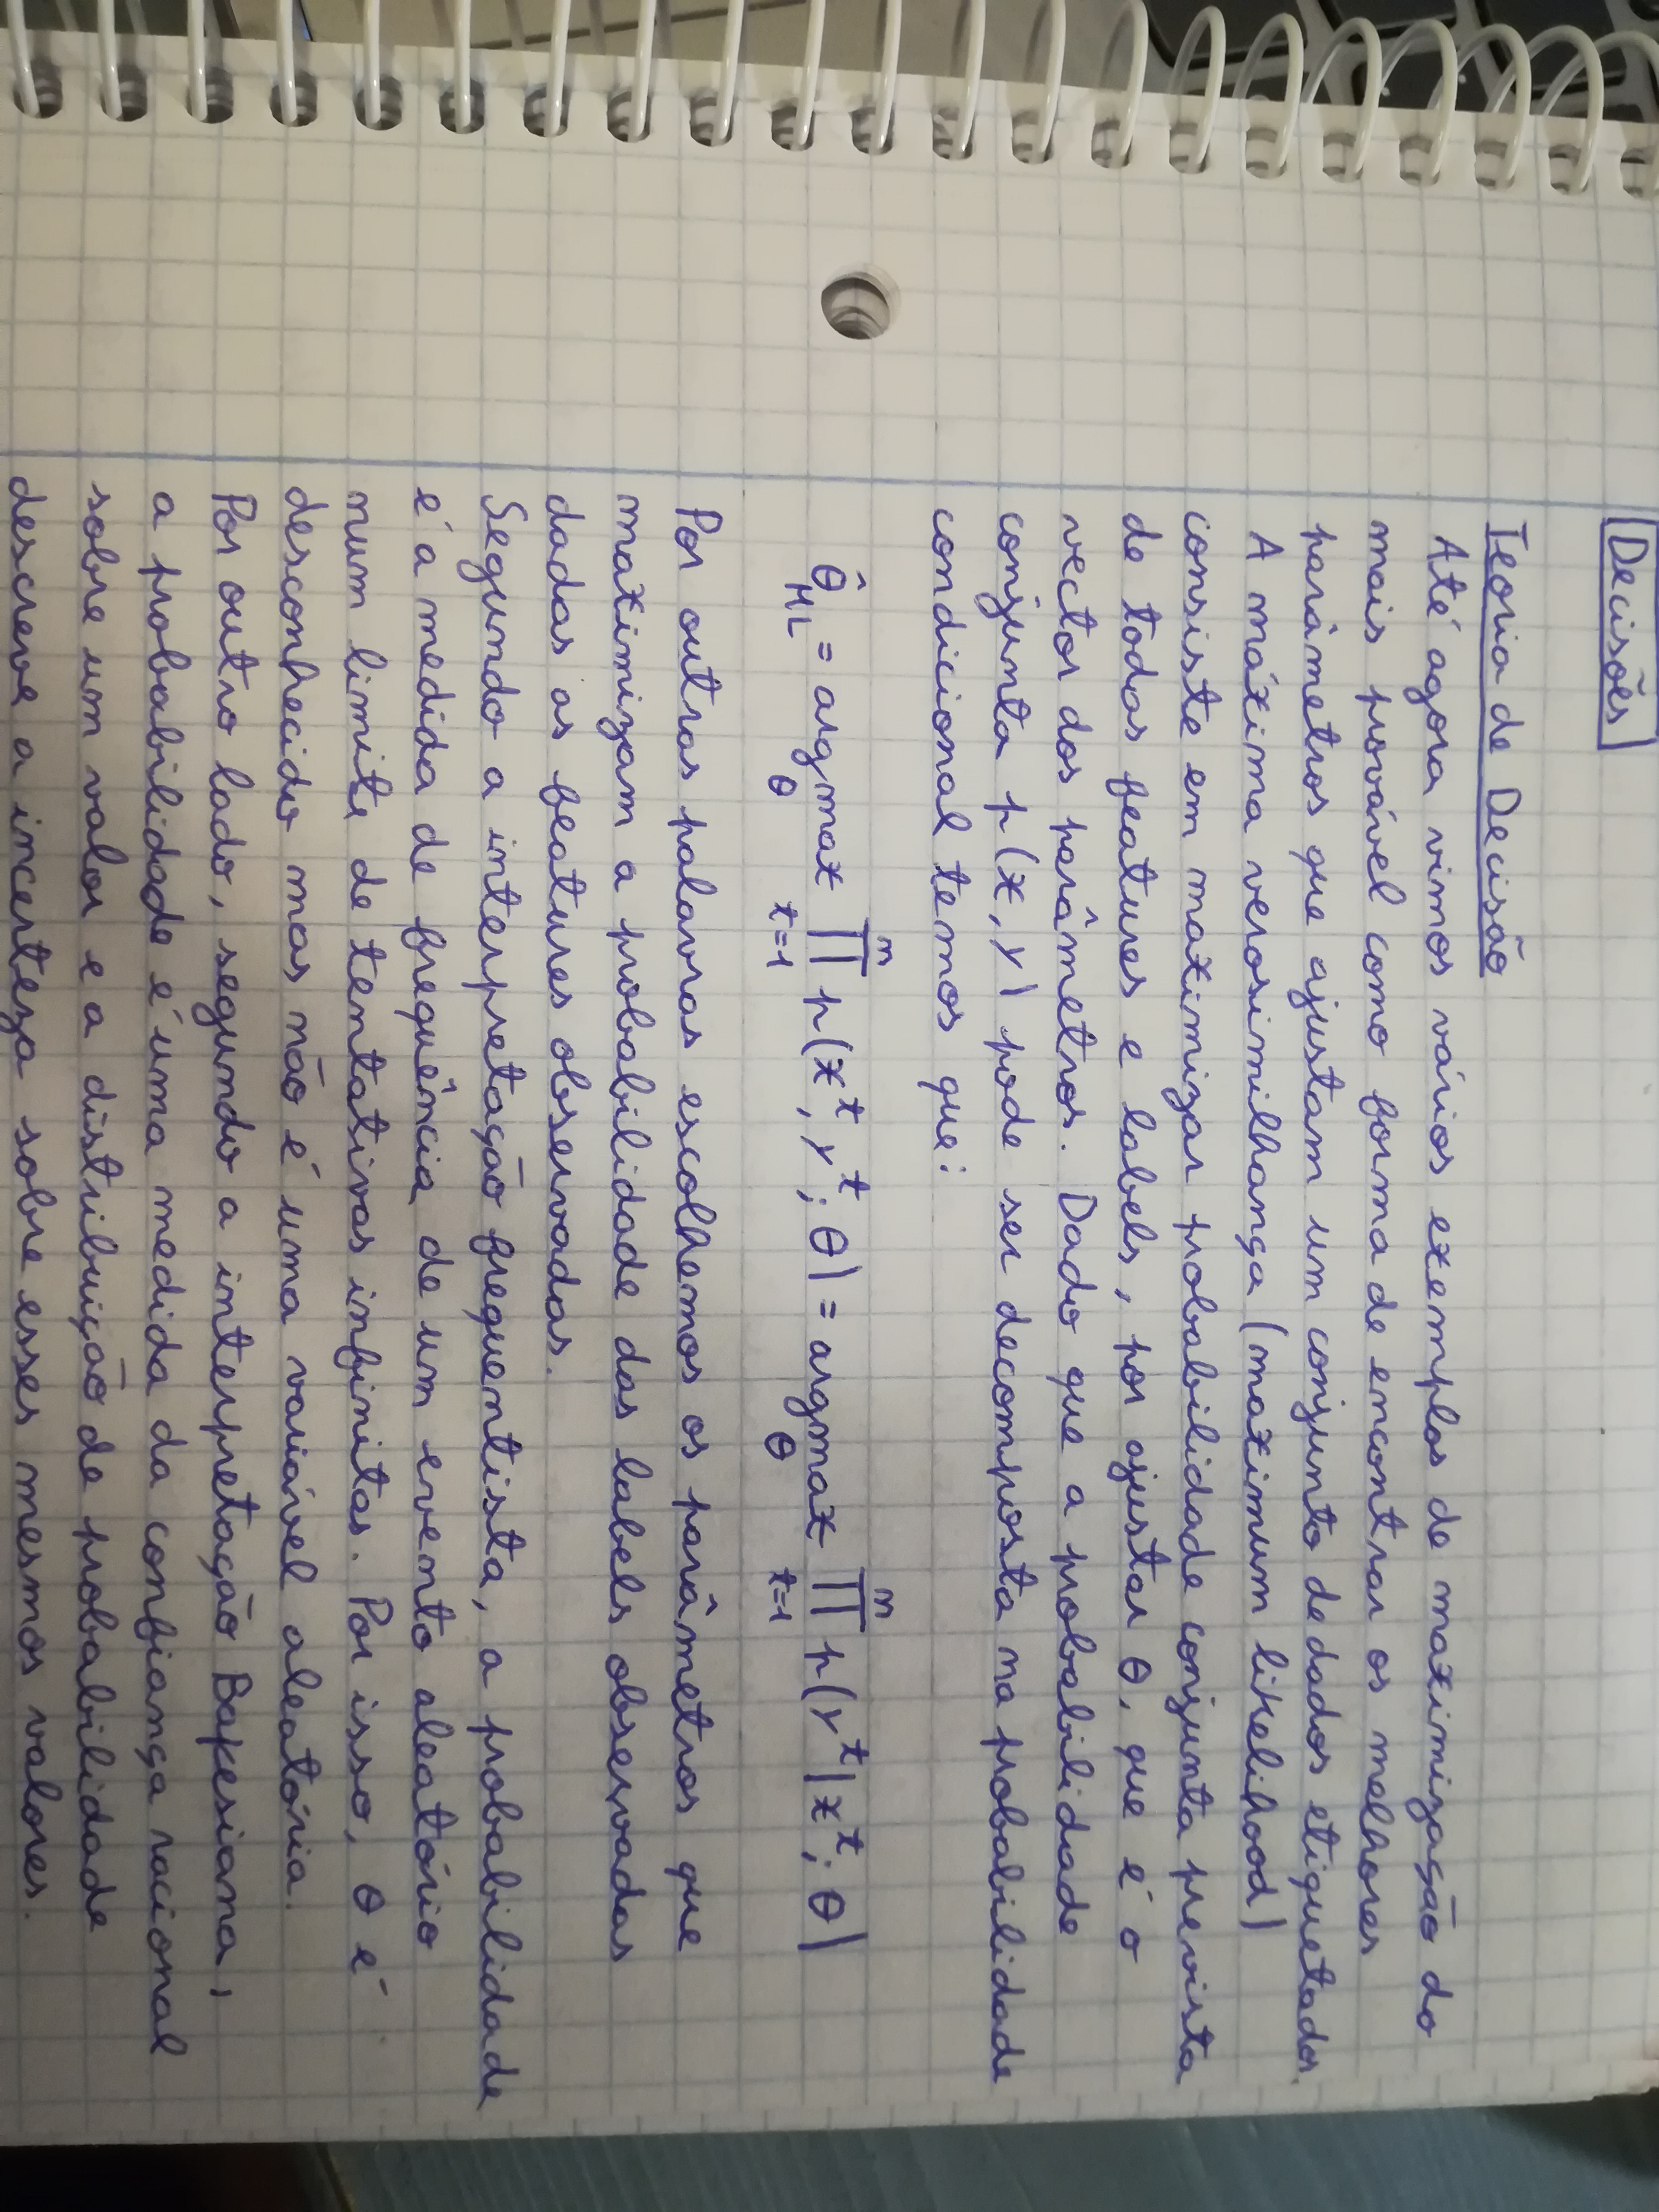 Decisões
Teoria de Decisão
Até agora vimos vários exemplos de maximização do
mais provável como forma de encontrar os melhores
parâmetros que ajustam um conjunto de dados etiquetados.
A máxima verosimilhança (maximum likelihood)
consiste em maximizar probabilidade conjunta prevista
de todas features e labels, por ajustar θ, que é o
vector dos parâmetros. Dado que a probabilidade
conjunta p(x,y) pode ser decomposta na probabilidade
condicional temos que:
θ̂_ML = argmax_θ ∏_{t=1}^{n} p(x^t, y^t; θ) = argmax_θ ∏_{t=1}^{n} p(y^t|x^t; θ)
Por outras palavras escolhemos os parâmetros que
maximizam a probabilidade das labels observadas
dadas as features observadas.
Segundo a interpretação frequentista, a probabilidade
é a medida de frequência de um evento aleatório
num limite de tentativas infinitas. Por isso, θ é
desconhecido mas não é uma variável aleatória.
Por outro lado, segundo a interpretação Bayesiana,
a probabilidade é uma medida da confiança racional
sobre um valor e a distribuição de probabilidade
descreve a incerteza sobre esses mesmos valores.